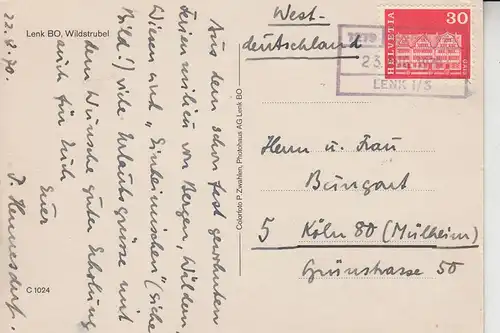 Lenk BO, Wildstrubel
22.8.70.
Aus dem schon fast gewohnten
Ferienmilieu von Bergen, Wäldern,
Wiesen und "Einheimischen" (siehe
Bild!) viele Urlaubsgrüsse mit
dem Wunsche guter Erholung
auch für Euch
Euer
P. Hennesdorf.
C 1024
Colorfoto P. Zwahlen, Photohaus AG Lenk BO
West-
deutschland
HELVETIA 30
LENK I/S
Herrn u. Frau
Bungart
5 Köln 80 (Mülheim)
Grünstrasse 50